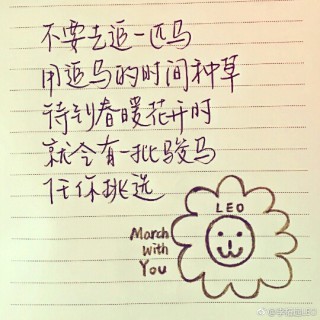 不要去追一匹马
用追马的时间种草
待到春暖花开时
就会有一批骏马
任你挑选
LEO
March
With
You